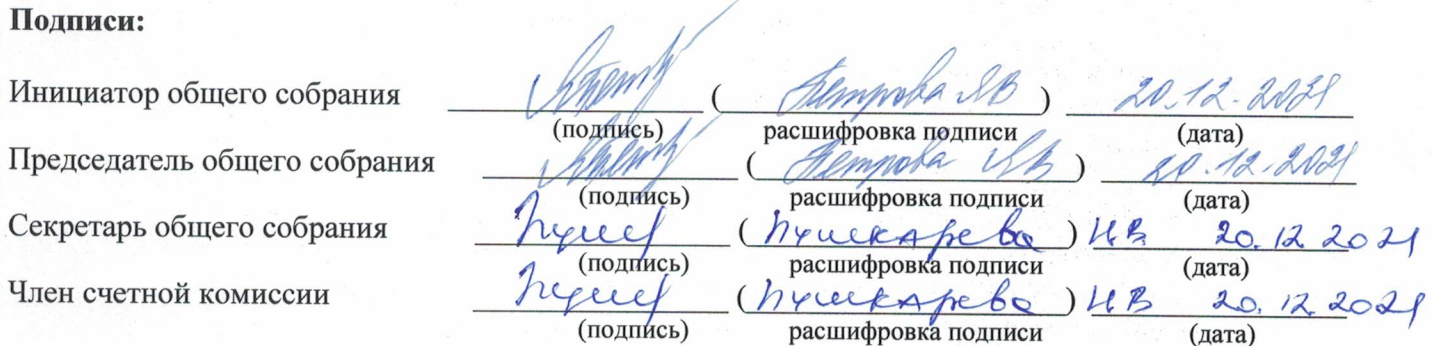 Подписи:
Инициатор общего собрания (Петрова ЯВ) 20.12.2021
(подпись) расшифровка подписи (дата)
Председатель общего собрания (Петрова ЯВ) 20.12.2021
(подпись) расшифровка подписи (дата)
Секретарь общего собрания (Пушкарева) Н.В. 20.12.2021
(подпись) расшифровка подписи (дата)
Член счетной комиссии (Пушкарева) Н.В 20.12.2021
(подпись) расшифровка подписи (дата)